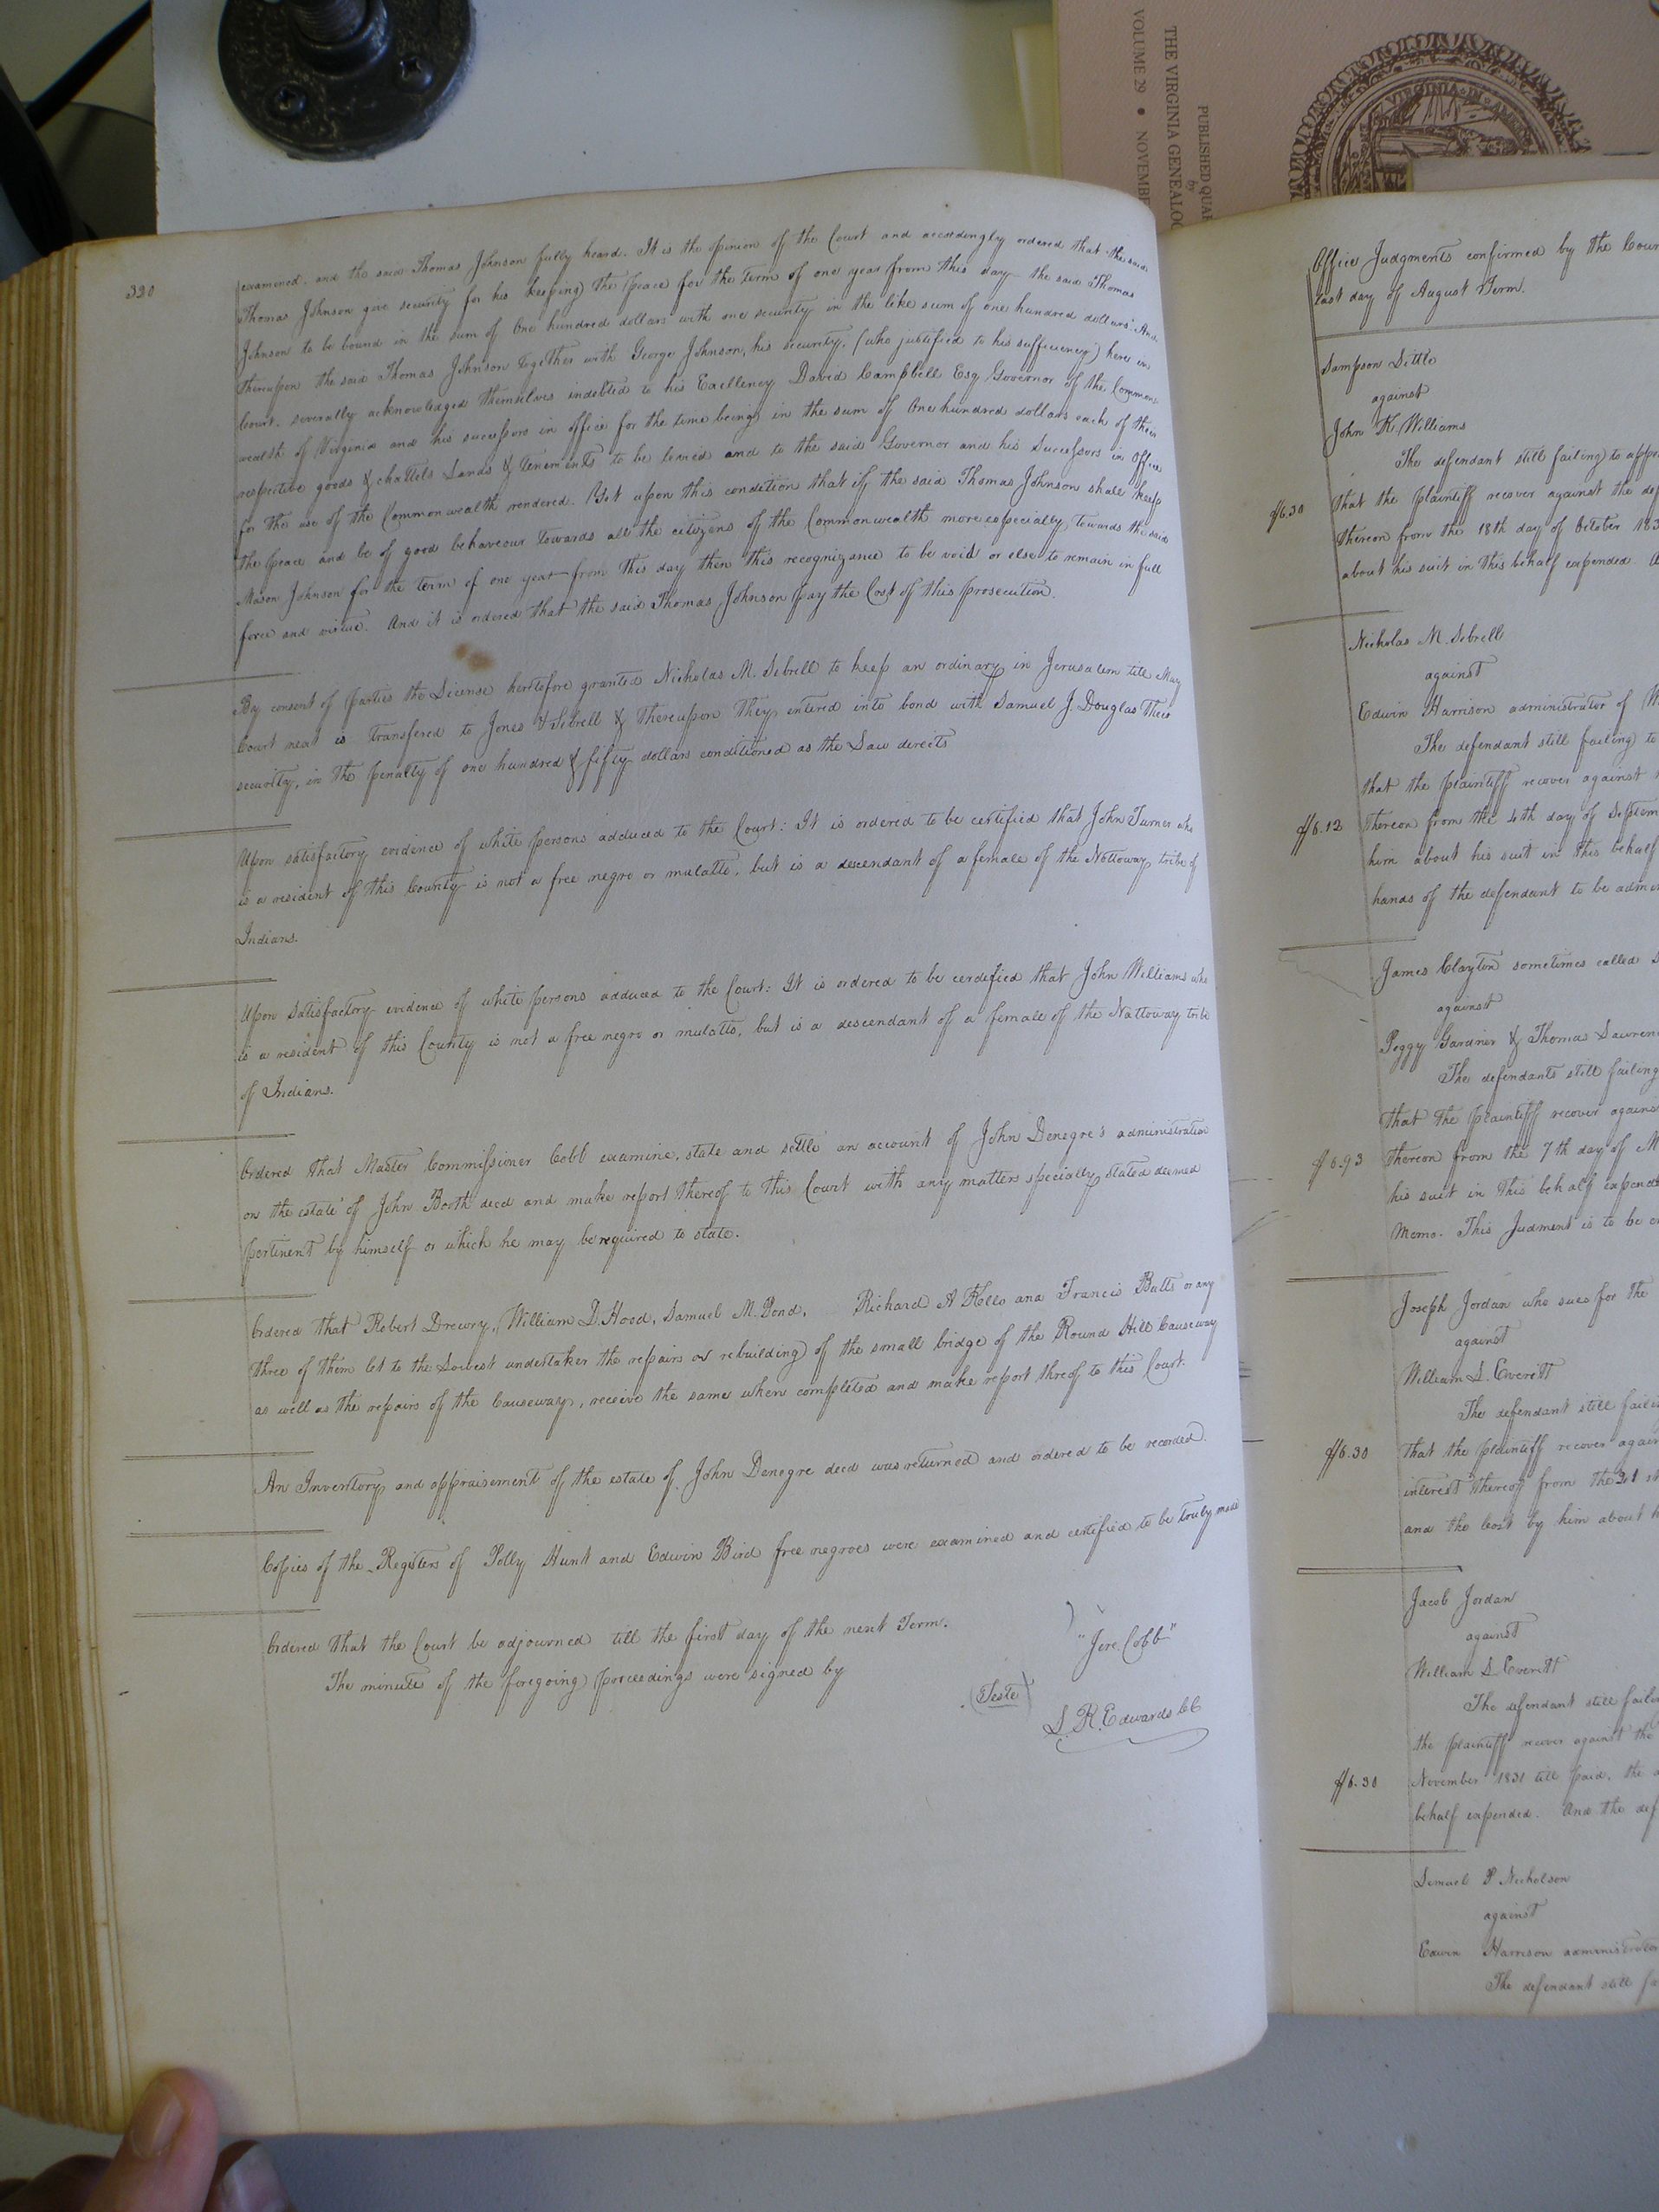 THE VIRGINIA GENEALO
VOLUME 29 • NOVEMBE
PUBLISHED QUA
by
VIRGINIA IN
330
examined, and the said Thomas Johnson fully heard. It is the opinion of the Court and accordingly ordered that the said
Thomas Johnson give security for his keeping the peace for the term of one year from this day the said Thomas
Johnson to be bound in the sum of One hundred dollars with one security in the like sum of one hundred dollars. And
thereupon the said Thomas Johnson together with George Johnson, his security, (who justified to his sufficiency) here in
Court severally acknowledged themselves indebted to his Excellency David Campbell Esq Governor of the Common
wealth of Virginia and his successors in office for the time being in the sum of One hundred dollars each of their
respective goods & chattels Lands & tenements to be levied and to the said Governor and his Successors in Office
for the use of the Commonwealth rendered. Yet upon this condition that if the said Thomas Johnson shall keep
the peace and be of good behaveour towards all the citizens of the Commonwealth more especially towards the said
Mason Johnson for the term of one year from this day then this recognizance to be void or else to remain in full
force and virtue. And it is ordered that the said Thomas Johnson pay the Cost of this prosecution.
By consent of parties the License heretofore granted Nicholas M. Sebrell to keep an ordinary in Jerusalem till May
Court next is transfered to Jones & Sebrell & thereupon they entered into bond with Samuel J. Douglas their
security, in the penalty of one hundred & fifty dollars conditioned as the Law directs
Upon satisfactory evidence of white persons adduced to the Court: It is ordered to be certified that John Turner who
is a resident of this County is not a free negro or mulatto, but is a descendant of a female of the Nottoway tribe of
Indians.
Upon satisfactory evidence of white persons adduced to the Court: It is ordered to be cerdefied that John Williams who
is a resident of this County is not a free negro or mulatto, but is a descendant of a female of the Nattoway tribe
of Indians.
Ordered that Master Commissioner Cobb examine, state and settle an account of John Denegre's administration
on the estate of John Booth decd and make report thereof to this Court with any matters specially stated deemed
pertinent by himself or which he may be required to state.
Ordered that Robert Drewry, William D. Hood, Samuel M. Pond, Richard A Kello and Francis Butts or any
three of them let to the Lowest undertaker the repairs or rebuilding of the small bridge of the Round Hill Causeway
as well as the repairs of the Causeway, receive the same when completed and make report threof to this Court.
An Inventory and appraisement of the estate of John Denegre decd was returned and ordered to be recorded.
Copies of the Registers of Polly Hunt and Edwin Bird free negroes were examined and certified to be truly made
Ordered that the Court be adjourned till the first day of the next Term.
The minutes of the foregoing proceedings were signed by
"Jere. Cobb"
Teste
L. R. Edwards CC
Office Judgments confirmed by the Cour
last day of August Term.
Sampson Little
against
John K. Williams
The defendant still failing to appe
$6.30 that the plaintiff recover against the def
thereon from the 18th day of October 183
about his suit in this behalf expended. A
Nicholas M. Sebrell
against
Edwin Harrison administrator of
The defendant still failing to
that the plaintiff recover against
$6.12 thereon from the 4th day of Septem
him about his suit in this behalf
hands of the defendant to be admi
James Clayton sometimes called
against
Peggy Gardner & Thomas Lawren
The defendants still failing
that the plaintiff recover against
$6.93 thereon from the 7th day of M
his suit in this behalf expende
Memo. This Judgment is to be
Joseph Jordan who sues for the
against
William L. Everitt
The defendant still faili
$6.30 that the plaintiff recover again
interest thereof from the 21 st
and the Cost by him about h
Jacob Jordan
against
William L Everitt
The defendant still faile
the plaintiff recover against the
$6.30 November 1831 till paid, the
behalf expended. And the def
Lemuel P Nicholson
against
Edwin Harrison administrator
The defendant still fa